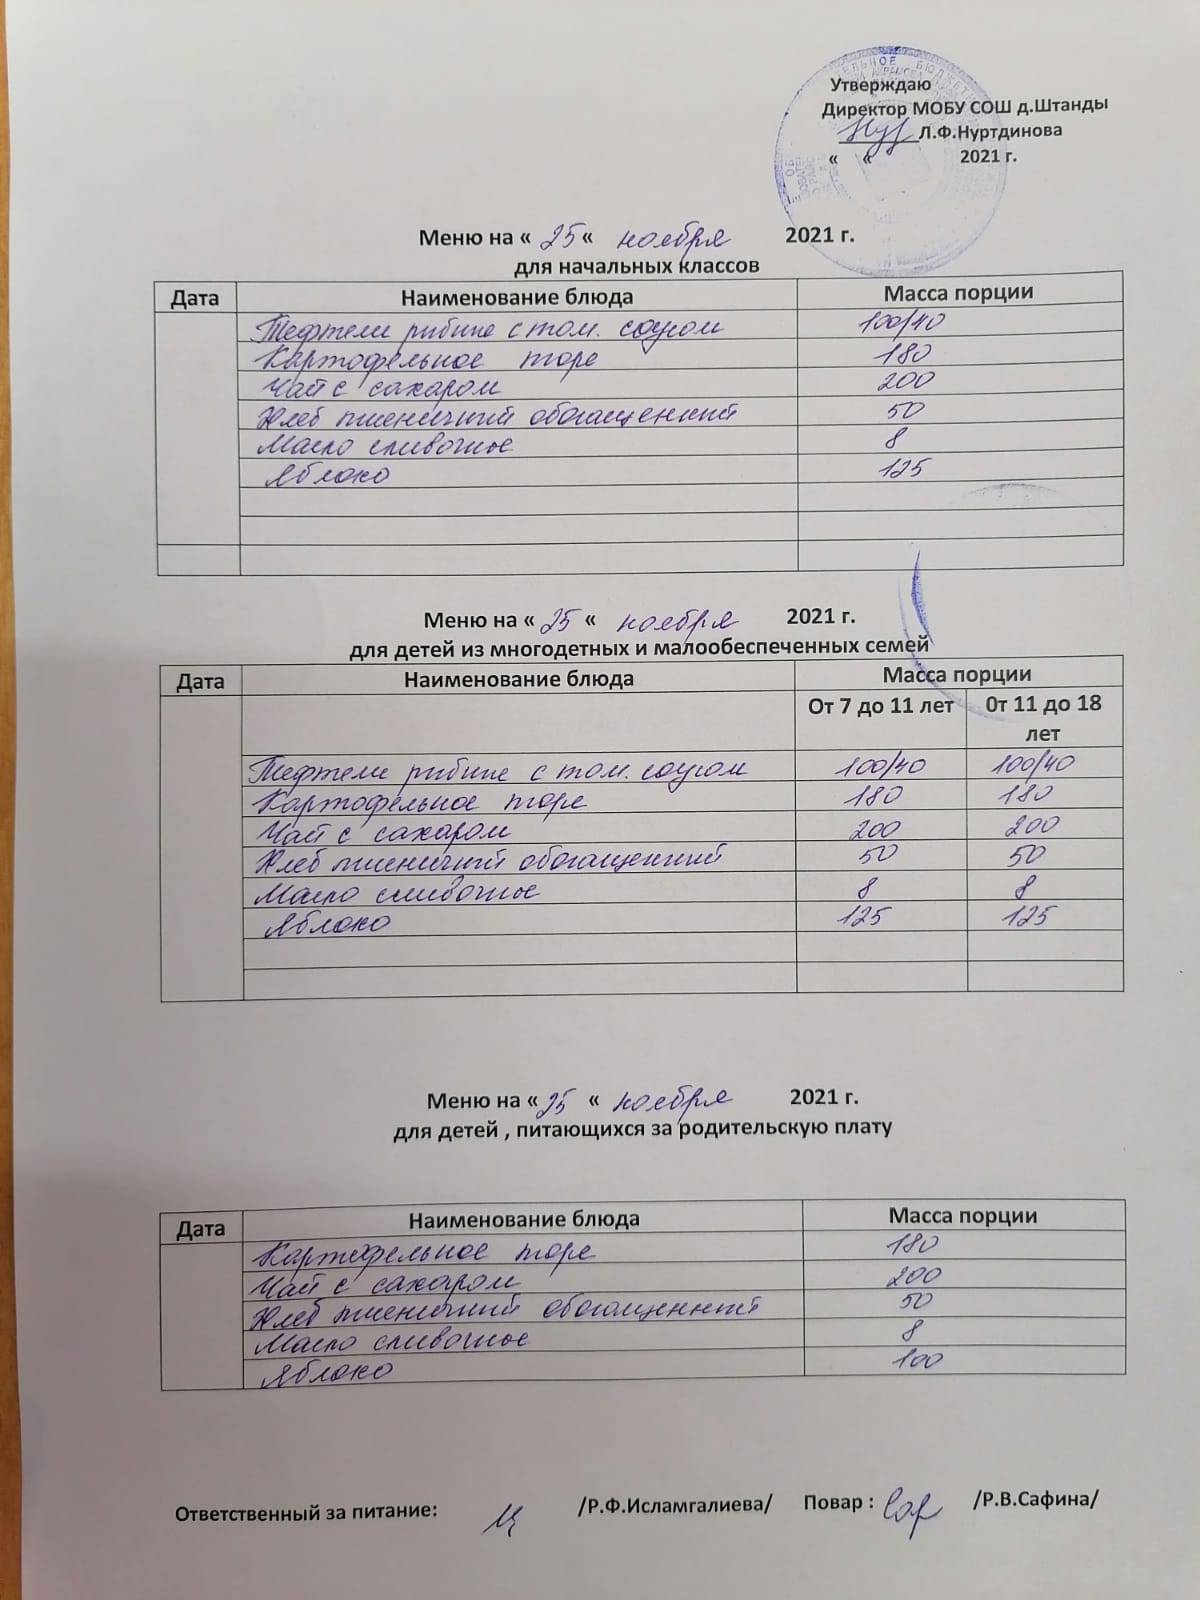 Утверждаю
Директор МОБУ СОШ д.Штанды
Л.Ф.Нуртдинова
« « 2021 г.
Меню на « 25 « ноября 2021 г.
для начальных классов
Дата Наименование блюда Масса порции
Тефтели рыбные с том. соусом 100/40
Картофельное пюре 180
Чай с сахаром 200
Хлеб пшеничный обогащенный 50
Масло сливочное 8
Яблоко 125
Меню на « 25 « ноября 2021 г.
для детей из многодетных и малообеспеченных семей
Дата Наименование блюда Масса порции
От 7 до 11 лет 0т 11 до 18
лет
Тефтели рыбные с том. соусом 100/40 100/40
Картофельное пюре 180 180
Чай с сахаром 200 200
Хлеб пшеничный обогащенный 50 50
Масло сливочное 8 8
Яблоко 125 125
Меню на « 25 « ноября 2021 г.
для детей , питающихся за родительскую плату
Дата Наименование блюда Масса порции
Картофельное пюре 180
Чай с сахаром 200
Хлеб пшеничный обогащенный 50
Масло сливочное 8
Яблоко 100
Ответственный за питание: /Р.Ф.Исламгалиева/ Повар : /Р.В.Сафина/